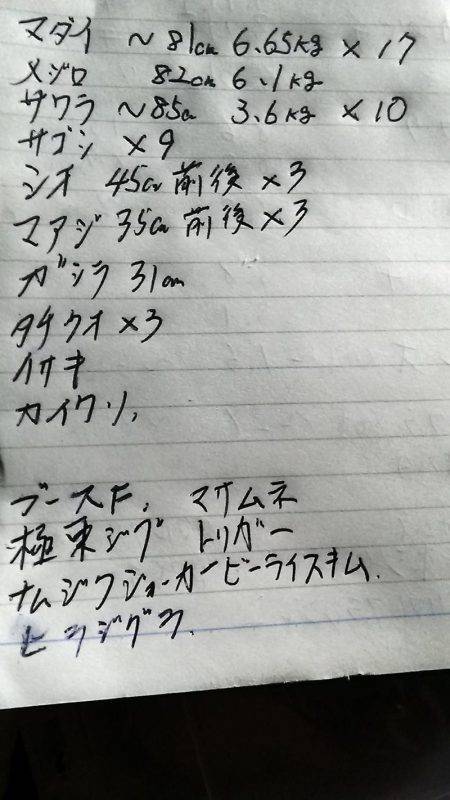 マダイ ~81cm 6.65kg ×17
メジロ 82cm 6.1kg
サワラ ~85cm 3.6kg ×10
サゴシ ×9
シオ 45cm前後×3
マアジ 35cm前後×3
ガシラ 31cm
タチウオ×3
イサキ
カイワリ、
ブースト、 マサムネ
極東ジグ トリガー
ナムジグジョーカービーライズキム.